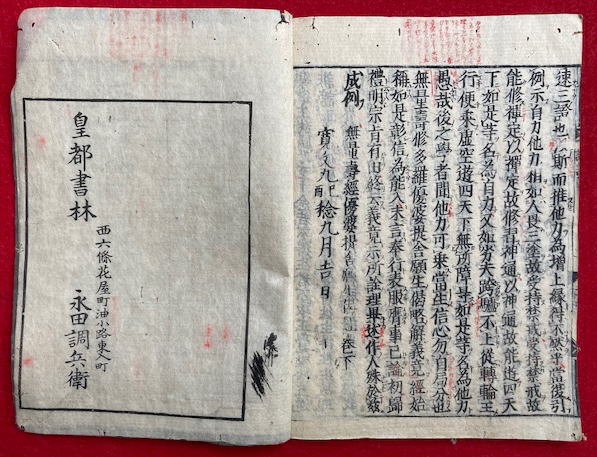 速三證也以斯而推他力為增上緣得不然乎當復引
例示自力他力相如人畏三塗故受持禁戒受持禁戒故
能修禪定以禪定故修習神通以神通故能遊四天
下如是等名為自力又如劣夫跨驢不上從轉輪王
行便乘虛空遊四天下無所障㝵如是等名為他力
愚哉後之學者聞他力可乘當生信心勿自局分也
無量壽修多羅優婆提舍願生偈略解義竟經始
稱如是彰信為能入末言奉行表服膺事已論初歸
禮明宗旨有由終云義竟示所詮理畢述作人殊於茲
成例
無量壽經優婆提舍願生偈註卷下
寛文九己酉稔九月吉日
皇都書林
西六條花屋町油小路東入町
永田調兵衛